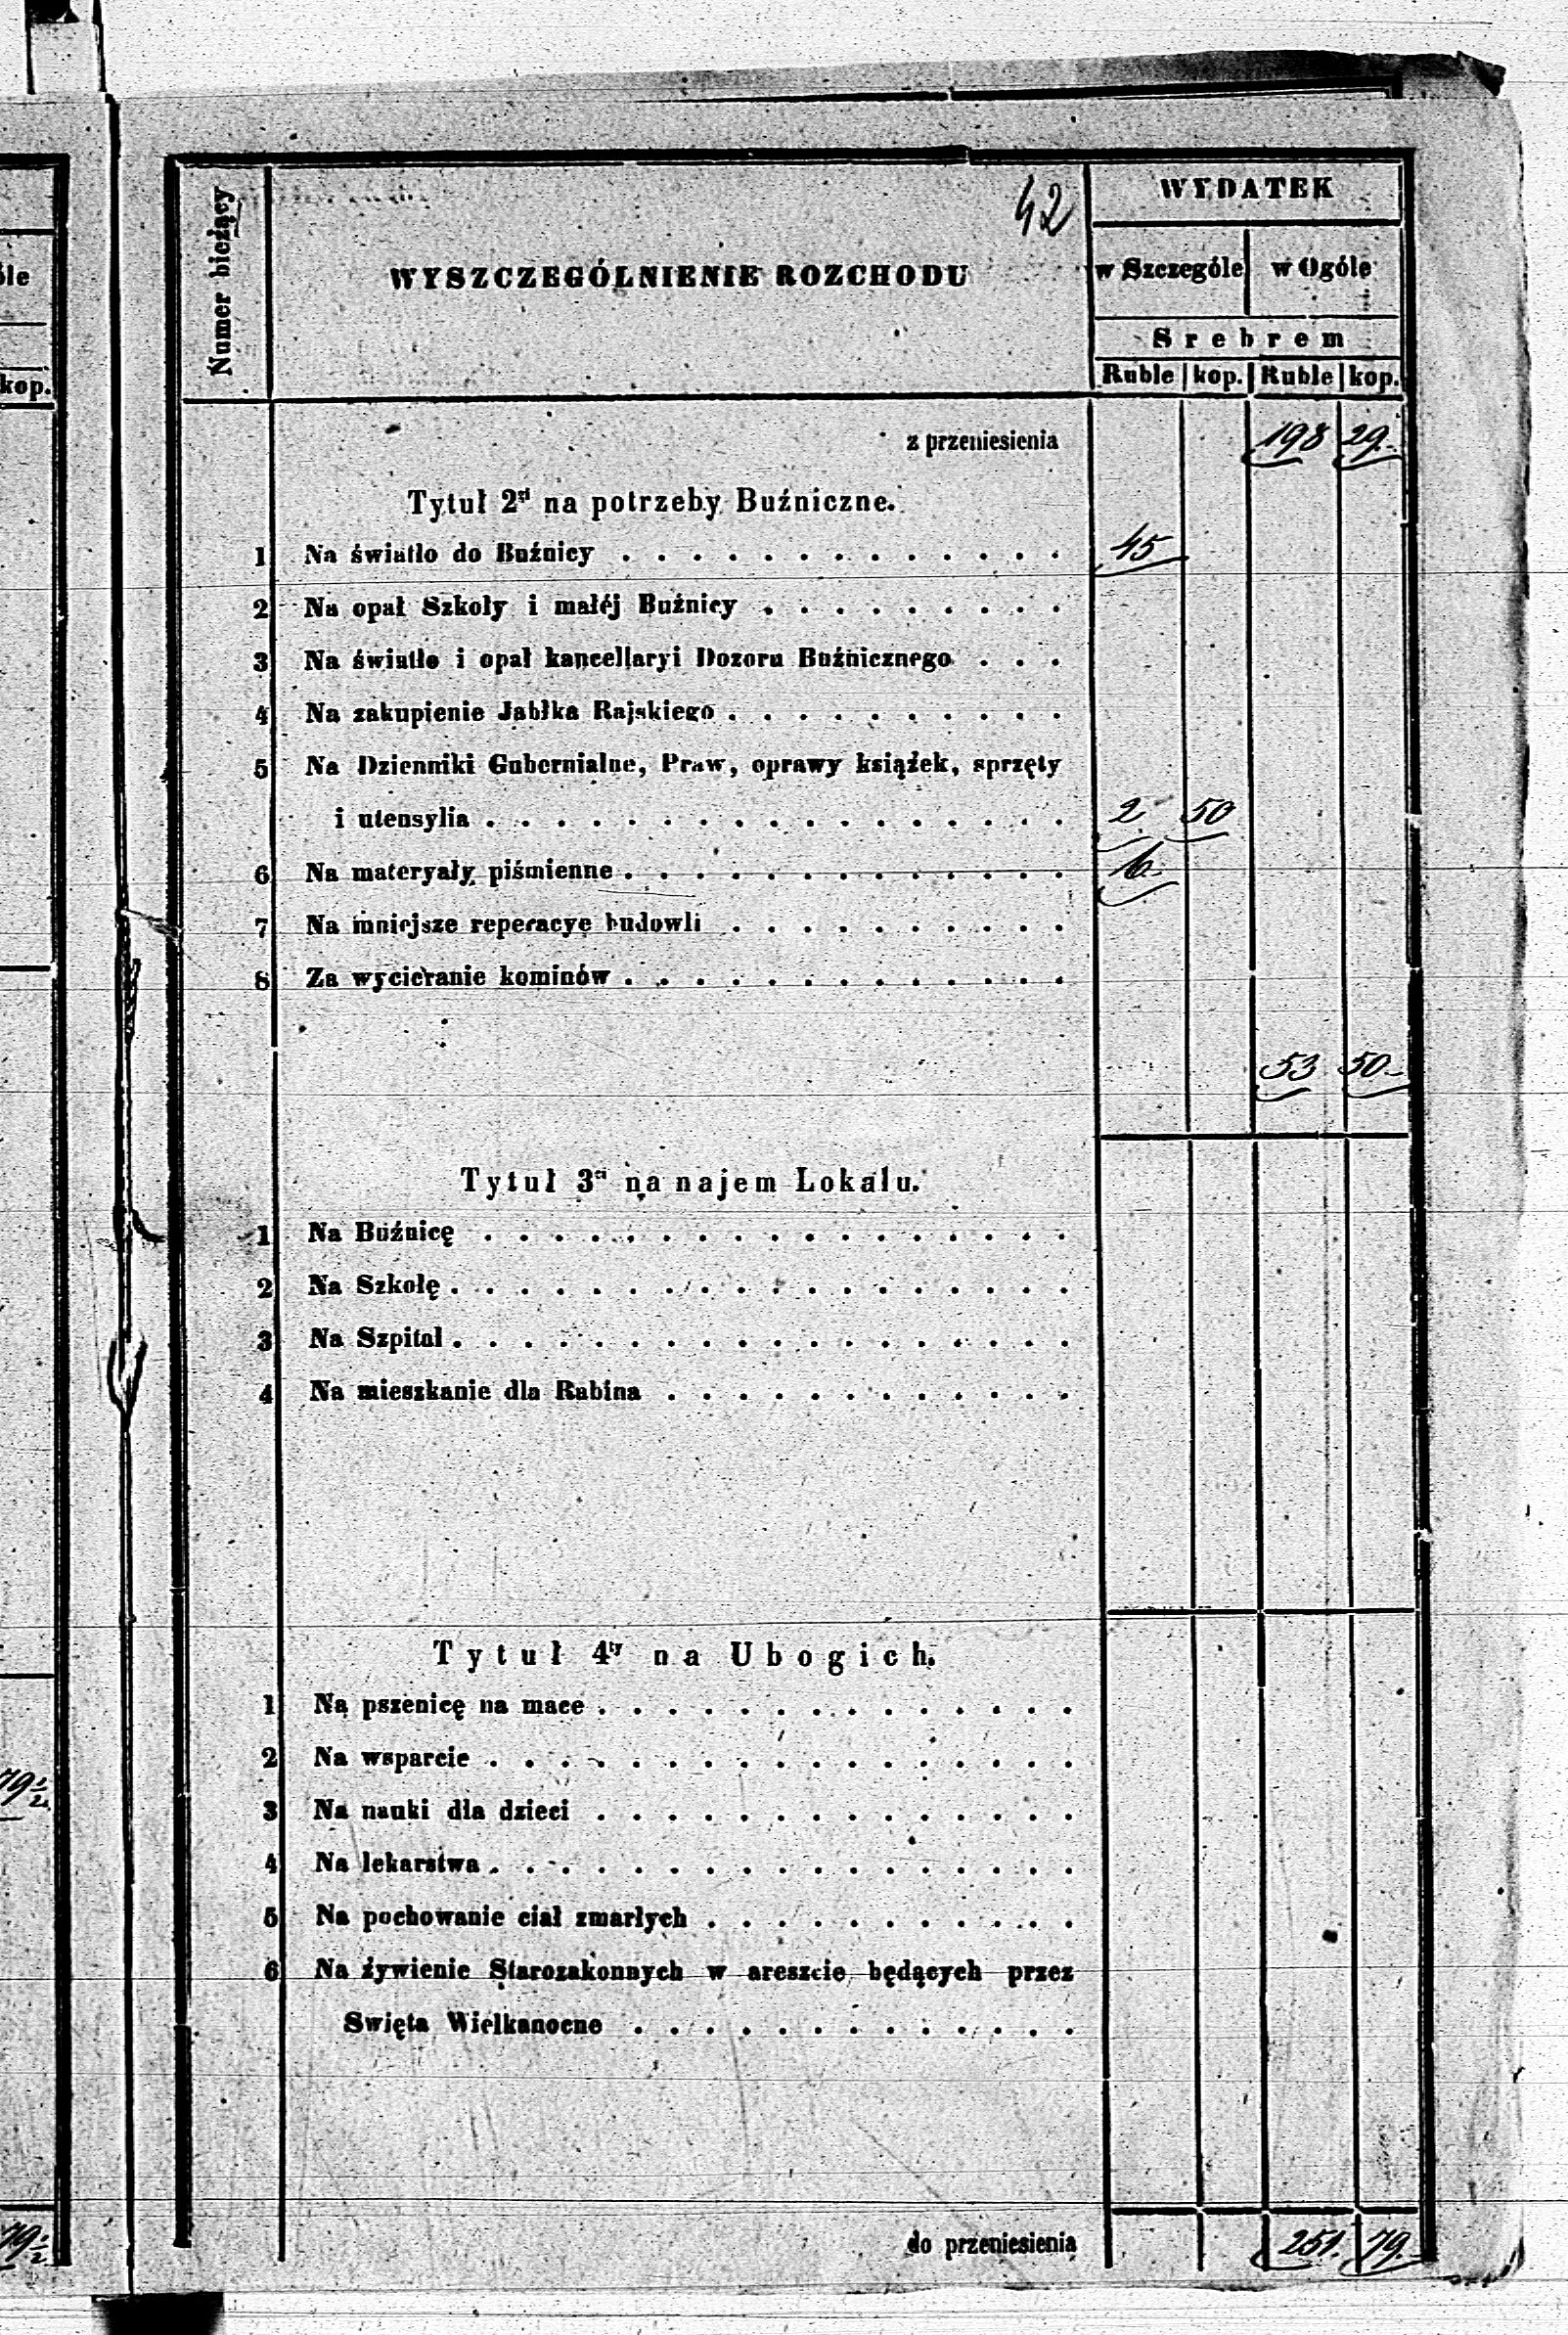 ole
kop.
79 1/2
79 1/2
42
Numer bieżący
WYSZCZEGÓLNIENIE ROZCHODU
WYDATEK
w Szczególe w Ogóle
Srebrem
Ruble kop. Ruble kop.
z przeniesienia 198 29.
Tytuł 2gi na potrzeby Buźniczne.
1 Na światło do Buźnicy . . . . . . . . . . . . . 45
2 Na opał Szkoły i małéj Buźnicy . . . . . . . . .
3 Na światło i opał kancellaryi Dozoru Buźnicznego . . .
4 Na zakupienie Jabłka Rajskiego . . . . . . . . . .
5 Na Dzienniki Gubernialne, Praw, oprawy książek, sprzęty
i utensylia . . . . . . . . . . . . . . . . . 2 50
6 Na materyały piśmienne . . . . . . . . . . . . . 6
7 Na mniejsze reperacye budowli . . . . . . . . . .
8 Za wycieranie kominów . . . . . . . . . . . . .
53 50
Tytuł 3ci na najem Lokalu.
1 Na Buźnicę . . . . . . . . . . . . . . . . .
2 Na Szkołę . . . . . . . . . . . . . . . . . .
3 Na Szpital . . . . . . . . . . . . . . . . . .
4 Na mieszkanie dla Rabina . . . . . . . . . . . .
Tytuł 4ty na Ubogich.
1 Na pszenicę na mace . . . . . . . . . . . . . .
2 Na wsparcie . . . . . . . . . . . . . . . . .
3 Na nauki dla dzieci . . . . . . . . . . . . . .
4 Na lekarstwa . . . . . . . . . . . . . . . . .
5 Na pochowanie ciał zmarłych . . . . . . . . . . .
6 Na żywienie Starozakonnych w areszcie będących przez
Swięta Wielkanocne . . . . . . . . . . . . .
do przeniesienia 251. 79.